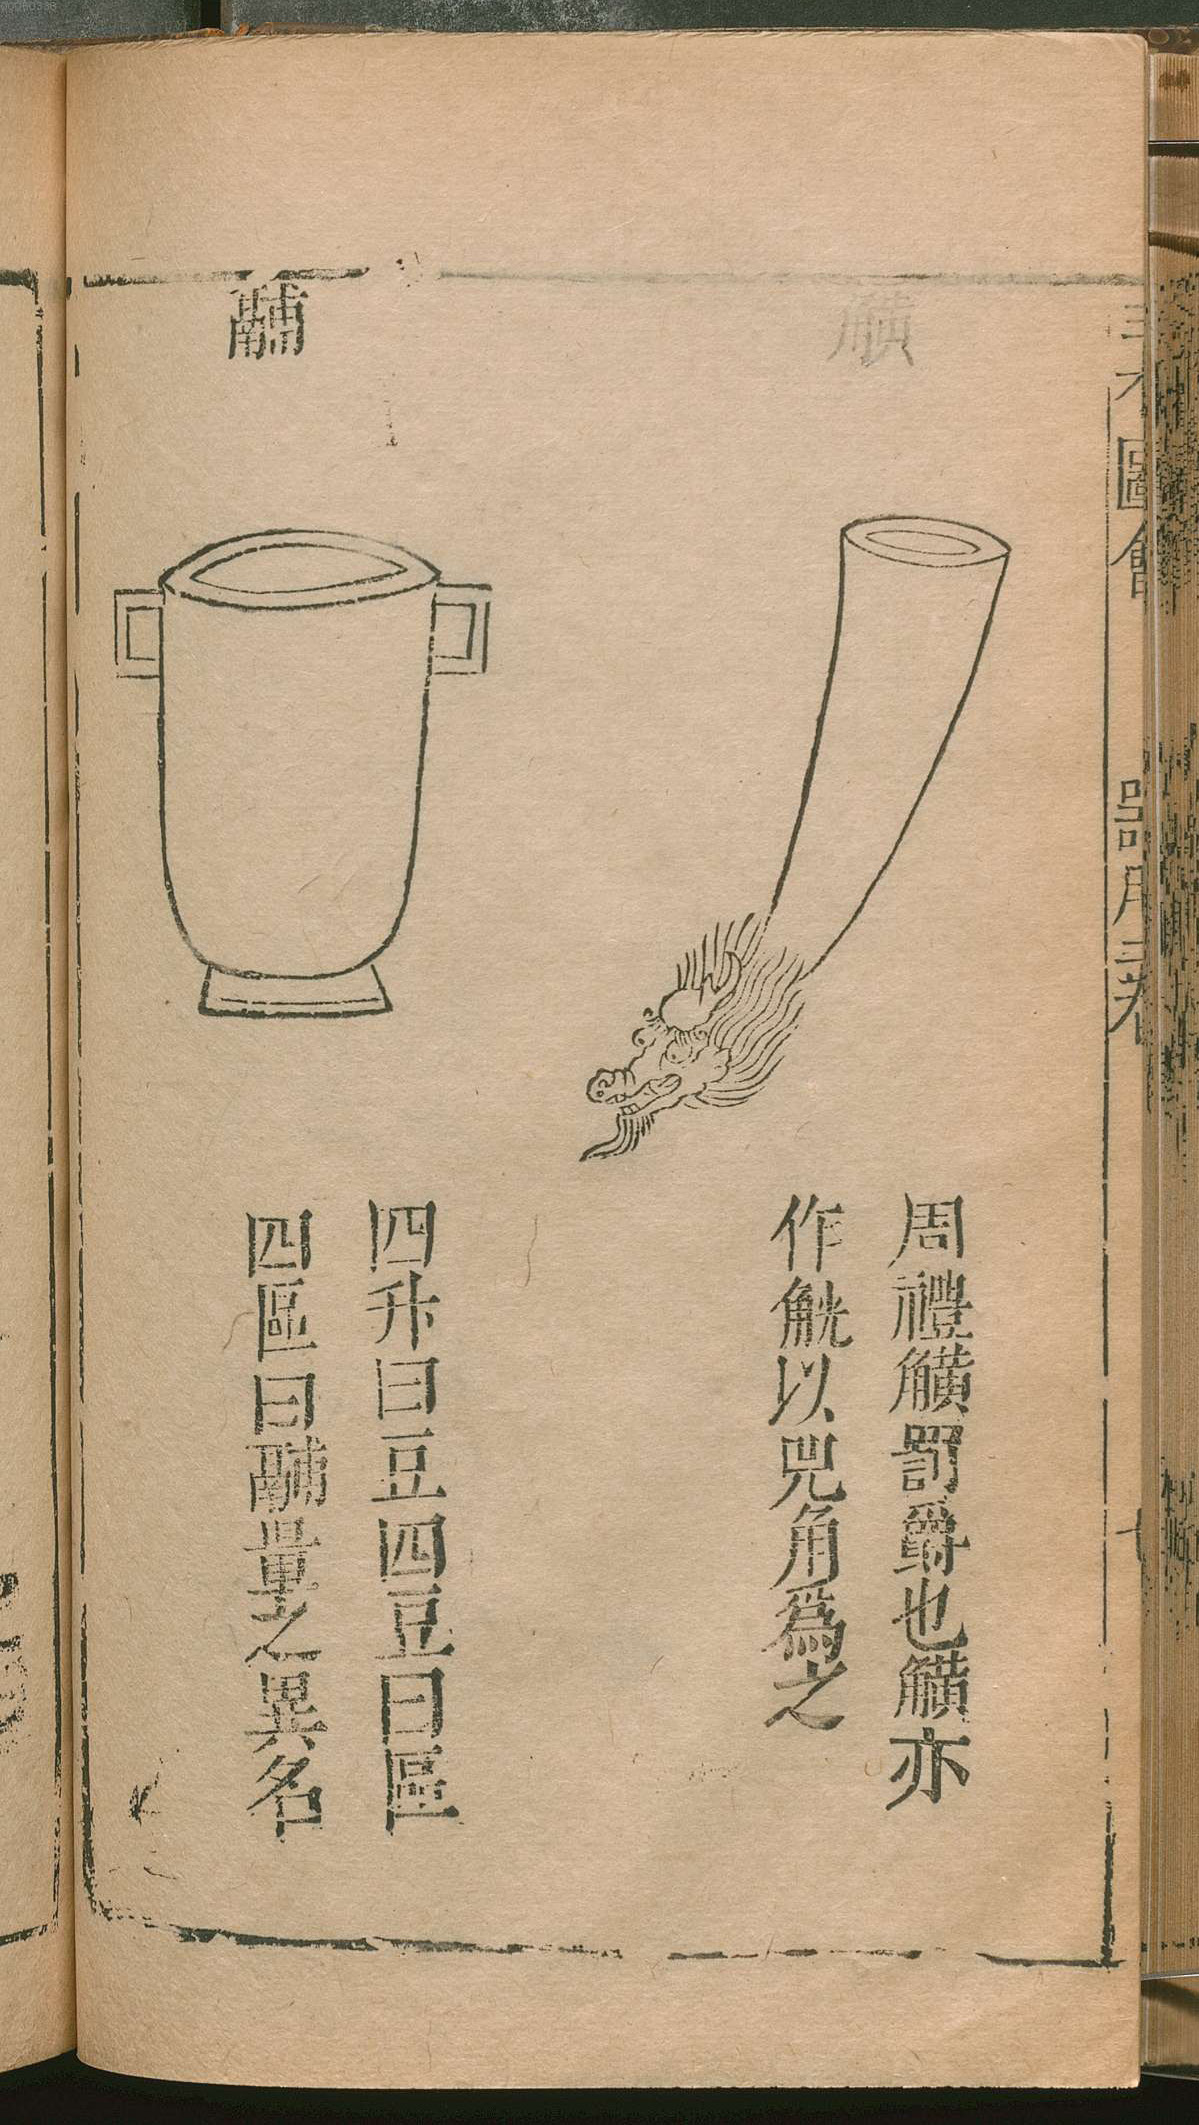 三才圖會
器用三卷
觵
周禮觵罰爵也觵亦
作觥以兕角爲之
鬴
四升曰豆四豆曰區
四區曰鬴量之異名